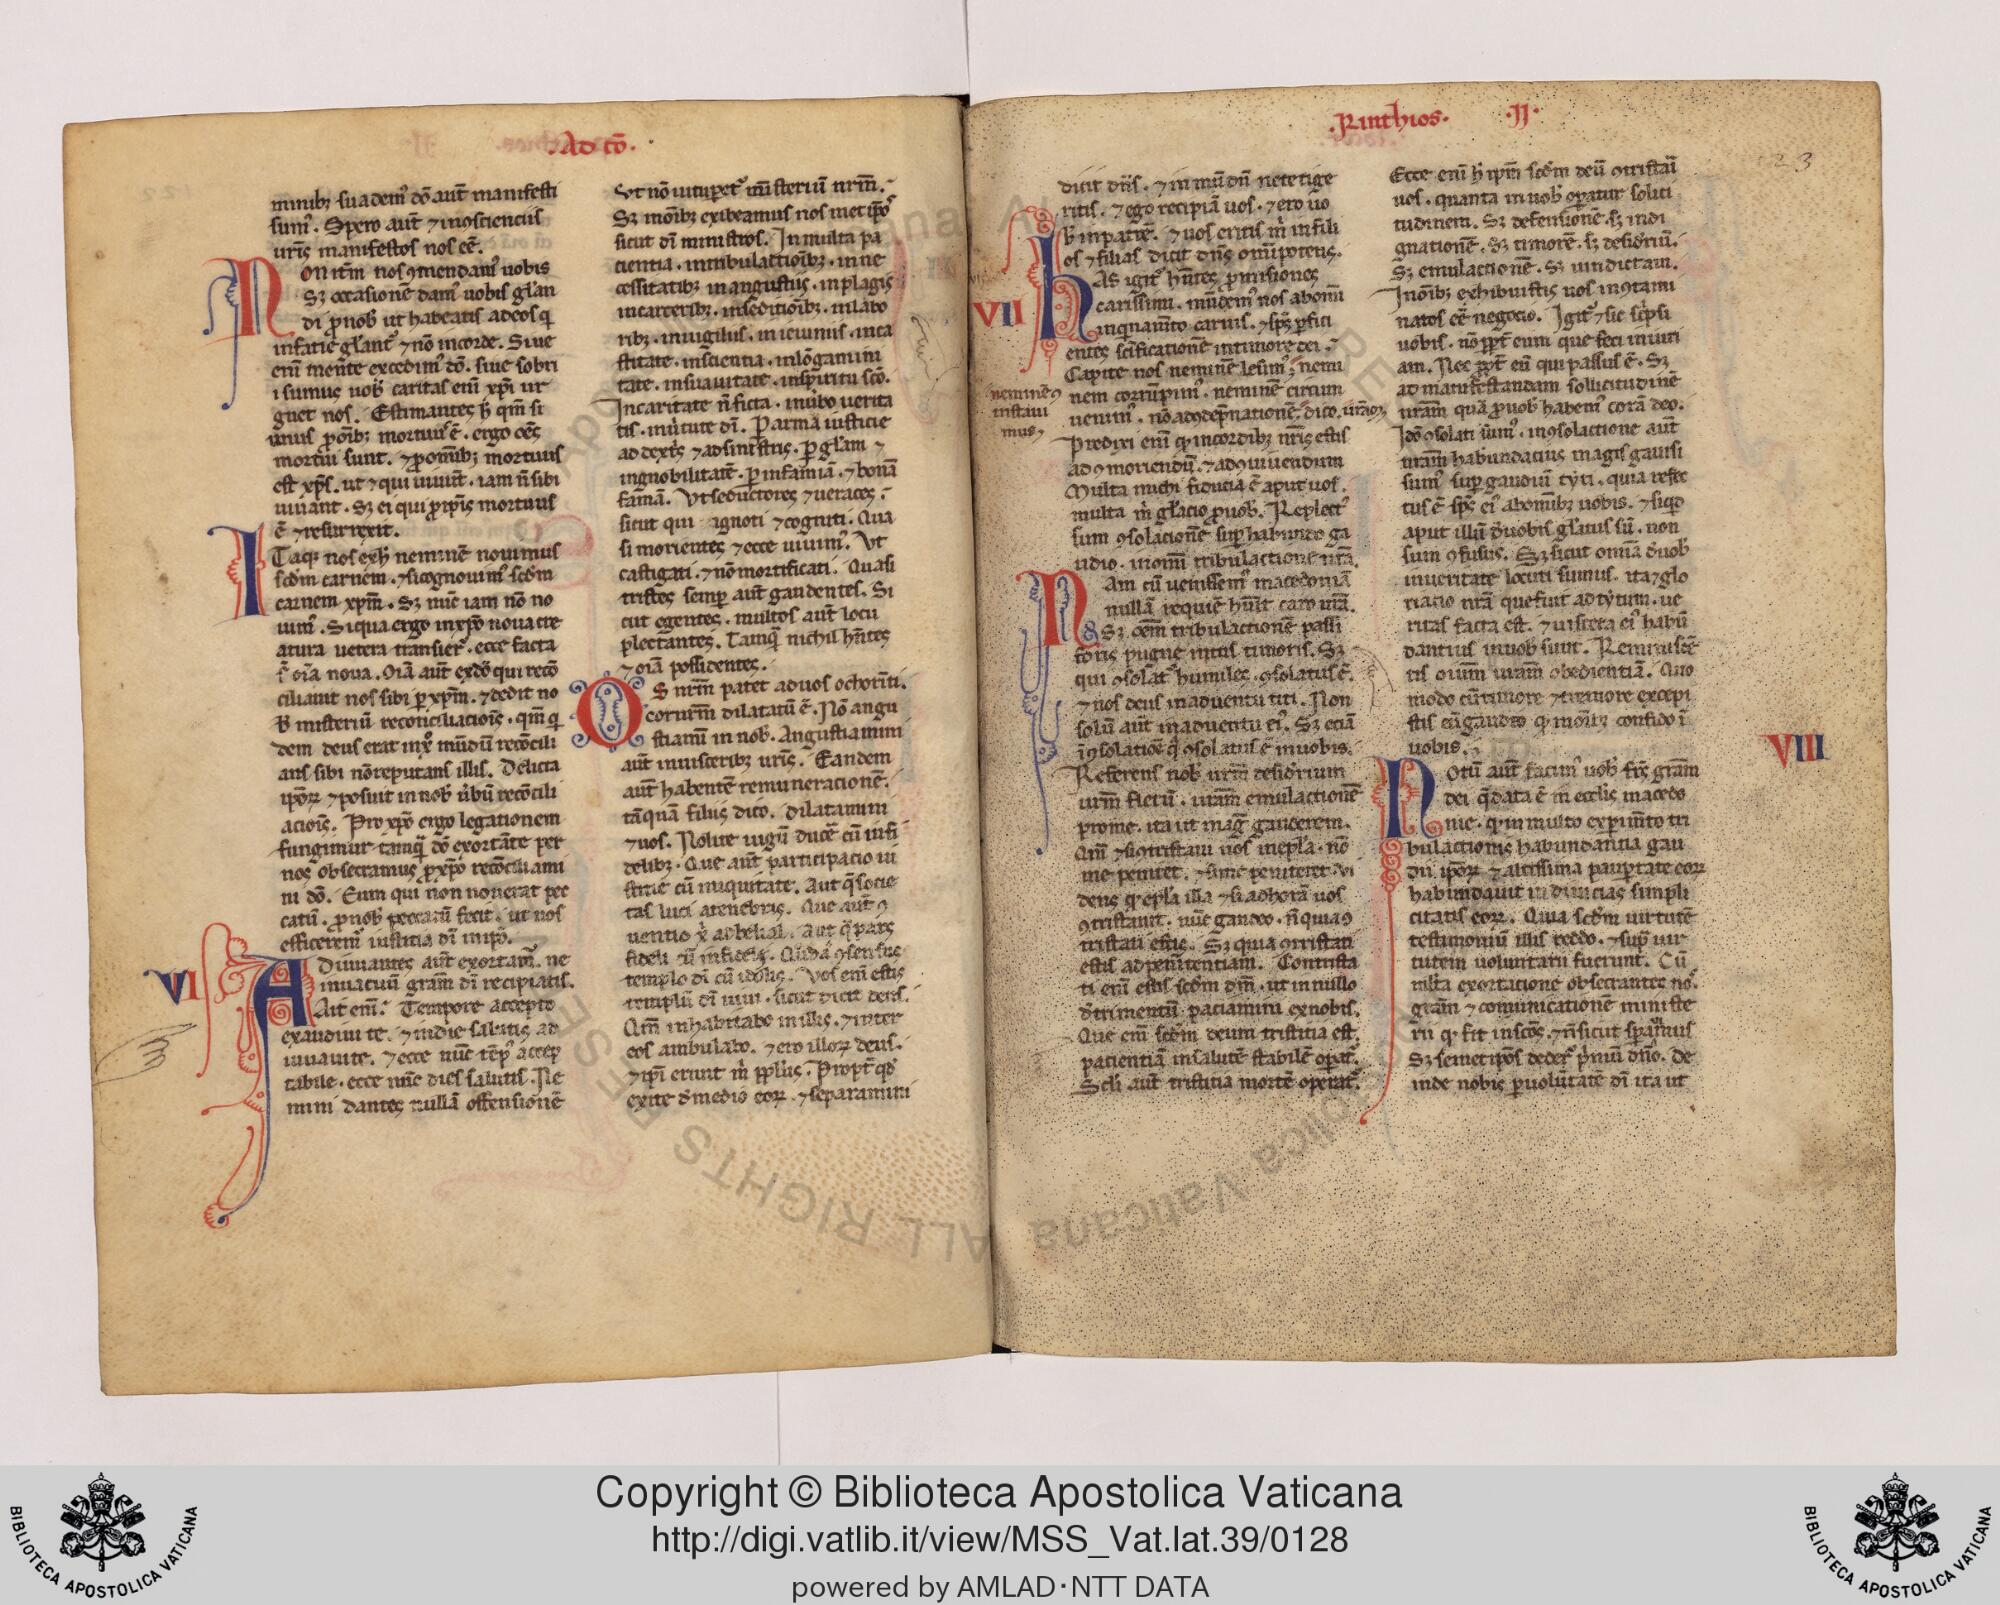 .Ad cō.
minib; suademꝰ dō aut̄ manifesti
sumꝰ. Spero aut̄ ⁊ inꝯsciencus
uris̄ manifestos nos eē.
Non itm̄ nos ꝯmendamꝰ uobis
Sꝫ occasionē damꝰ uobis gl̄an
di ꝓ nob̄ ut habeatis adeos q̄
infacie gl̄ant̄ ⁊ nō incorde. Siue
eni mente excedimꝰ dō. siue sobri
i sumus uob̄ caritas eni xp̄i ur
guet nos. Estimantes h̄ qm̄ si
unus ꝓ om̄ib; mortuus ē. ergo oēs
mortui sunt. ⁊ ꝓ omnib; mortuus
est xp̄s. ut ⁊ qui uiuūt. iam n̄ sibi
uiuant. Sꝫ ei qui ꝓ ip̄is mortuus
ē ⁊ resurrexit.
Itaq; nos exh̄ neminē nouimus
scd̄m carnem. ⁊ sicognouimꝰ scd̄m
carnem xp̄m. Sꝫ nūc iam nō no
uimꝰ. Siqua ergo inxp̄o noua cre
atura uetera transierꝰ. ecce facta
st̄ oīa noua. Oīa aut̄ exdō qui recō
ciliauit nos sibi ꝑ xp̄m. ⁊ dedit no
b̄ misteriū reconciliaciois̄. qm̄ q
dem deus erat inxp̄o mūdū recōcili
ans sibi nō reputans illis. Delicta
ip̄oꝝ ⁊ posuit in nob̄ ūbū recōcili
aciois̄. Pro xp̄o ergo legationem
fungimur tamq̄ dō exortāte per
nos obsecramus ꝓ xp̄o recōciliami
ni dō. Eum qui non nouerat pec
catū. ꝓ nob̄ peccatū fecit. ut nos
efficeremꝰ iusticia dī inip̄o.
VI
Adiuuantes aut̄ exortamꝰ. ne
inuacuū gram̄ dī recipiatis.
Ait eni. Tempore accepto
exaudiui te. ⁊ indie salutis ad
iuuaui te. ⁊ ecce nūc tēpꝰ accep
tabile. ecce nūc dies salutis. Ne
mini dantes nullā offensionē
Ut nō uitupet̄ mīsteriū nrm̄.
Sꝫ in oīb; exibeamus nos met ip̄os
sicut dī ministros. In multa pa
ciencia. intribulactioīb;. in ne
cessitatib; in angustiis. in plagis
incarcerib;. inseditioīb;. in labo
rib;. inuigiliis. in ieiuniis. in ca
stitate. in sciencia. in lōganimi
tate. in suauitate. in sp̄iritu scō.
In caritate n̄ ficta. in ūbo uerita
tis. in uirtute dī. P̄ arma iusticie
ad dext̄s ⁊ ad sinistris. P̄ gl̄am ⁊
ingnobilitatē. P̄ infamiā. ⁊ bonā
famā. Ut seductores ⁊ ueraces.
sicut qui ignoti ⁊ cogniti. Qua
si morientes ⁊ ecce uiuimꝰ. Ut
castigati. ⁊ nō mortificati. Quasi
tristes semp̄ aut̄ gaudentes. Si
cut egentes. multos aut̄ locu
plectantes. Tamq̄ nichil hn̄tes
⁊ oīa possidentes.
Os nrm̄ patet ad uos o chorīti.
cor nrm̄ dilatatū ē. Nō angu
stiamī in nob̄. Angustiamini
aut̄ in uisserib; uris̄. Eandem
aut̄ habentē remuneracionē.
tāquā filiis dico. dilatamini
⁊ uos. Nolite iugū ducē cū infi
delib;. Que aut̄ participacio iu
sticie cū iniquitate. Aut q̄ socie
tas luci a tenebris. Que aut̄ ꝯ
uentio x̄ ad belial. Aut q̄ pars
fideli cū infideli. Quid a ꝯsensus
templo dī cū idolis. Vos eni estis
templū dī uiui. sicut dicit deus.
Qm̄ inhabitabo in illis. ⁊ inter
eos ambulabo. ⁊ ero illoꝝ deus.
⁊ ip̄i erunt m̄ pp̄lus. Propt̄ qd̄
exite d̄ medio eoꝝ. ⁊ separamini
.Rinthios. .II.
23
dicit dn̄s. ⁊ in mūdū ne tetige
ritis. ⁊ ego recipiā uos. ⁊ ero uo
b̄ in patrē. ⁊ uos eritis m̄ in fili
os ⁊ filias dicit dn̄s omīpotens.
VII
Has igit̄ hn̄tes ꝓmisiones
carissimi. mūdemꝰ nos ab om̄i
inquinam̄to carnis. ⁊ sp̄s ꝑfici
entes sc̄ificationē in timore dei.
Capite nos neminē lesimꝰ; nemi
nem corrūpimꝰ. neminē circum
uenimꝰ. nō ad ꝯdēpnationē dico. urāꝫ
neminē ꝯ
instaui
mus
Predixi eni q̄ in cordib; nris̄ estis
ad ꝯmoriendū. ⁊ ad ꝯuiuendum
Multa michi fiducia ē aput uos.
multa m̄ gl̄acio ꝓ uob̄. Replect̄
sum ꝯsolacionē suꝑ habundo ga
udio. in om̄i tribulactione nrā.
Nam cū uenissemꝰ macedoniā
nullā requiē hūit caro nrā.
Sꝫ oēm tribulactionē passi
foris pugne intus timoris. Sꝫ
qui ꝯsolat̄ humiles. ꝯsolatus ē.
⁊ nos deus in aduentu titi. Non
solū aut̄ in aduentu eiꝰ. Sꝫ eciā
ī ꝯsolatiōe q̄ ꝯsolatus ē in uobis.
Referens nob̄ urm̄ desid̄rium
urm̄ fletū. urām emulactionē
pro me. ita ut maḡ gauderem.
Qm̄ ⁊ si ꝯtristaui uos in epl̄a. nō
me penitet. ⁊ si me peniteret. ui
dens q̄ epl̄a illa ⁊ si ad horā uos
ꝯtristauit. nūc gaudeo. n̄ quia ꝯ
tristati estis. Sꝫ quia ꝯtristati
estis ad penitentiam. Contrista
ti eni estis scd̄m dm̄. ut in nullo
d̄trimentū paciamini ex nobis.
Que eni scd̄m deum tristitia est.
patientiā in salutē stabilē operat̄.
Scl̄i aut̄ tristitia mortē operat̄.
Ecce eni h̄ ip̄m scd̄m deū ꝯtristari
uos. quanta in uob̄ opatur soliti
tudinem. Sꝫ defensionē. sꝫ indi
gnationē. Sꝫ timorē. sꝫ desid̄riū.
Sꝫ emulactionē. Sꝫ uindictam.
In oīb; exhibuistis uos in ꝯtami
natos eē negocio. Igit̄ ⁊ sic sc̄psi
uobis. nō ꝓpt̄ eum que feci iniuri
am. Nec ꝓpt̄ eū qui passus ē. Sꝫ
ad manifestandam sollicitudinē
uram̄ quā ꝓ uob̄ habemꝰ corā deo.
Idō ꝯsolati sumꝰ. in ꝯsolactione aut̄
uram̄ habundacius magis gauisi
sumꝰ suꝑ gaudiū tyti. quia refec
tus ē sp̄s eiꝰ ab om̄ib; uobis. ⁊ siqd
aput illū d̄ uobis gl̄atus sū. non
sum ꝯfusus. Sꝫ sicut omīa d̄ uob̄
in ueritate locuti sumus. ita ⁊ glo
riacio nrā que fuit ad tytum. ue
ritas facta est. ⁊ uiscera eiꝰ habū
dantius in uob̄ sunt. Reminiscē
tis oīum uram̄ obedientiā. Quo
modo cū timore ⁊ tremore excepi
stis cū gaudeo q̄ in oīb; confido ī
uobis.
VIII
Notū aut̄ facimꝰ uob̄ frēs gram̄
dei q̄ data ē in ecclīs macedo
nie. q̄ in multo experim̄to tri
bulactionis habundantia gau
dii ip̄oꝝ ⁊ altissima pauꝑtate eoꝝ
habundauit in diuicias simpli
citatis eoꝝ. Quia scd̄m uirtutē
testimoniū illis reddo. ⁊ sup̄ uir
tutem uoluntarii fuerunt. Cū
mlt̄a exortacione obsecrantes noꝰ.
gram̄ ⁊ comunicationē ministe
rii q̄ fit in scōs. ⁊ n̄ sicut speramus
Sꝫ semetip̄os deder̄ p̄mū dn̄o. De
inde nobis ꝑ uolūtatē dī ita ut
Copyright © Biblioteca Apostolica Vaticana
http://digi.vatlib.it/view/MSS_Vat.lat.39/0128
powered by AMLAD·NTT DATA
BIBLIOTECA APOSTOLICA VATICANA
BIBLIOTECA APOSTOLICA VATICANA